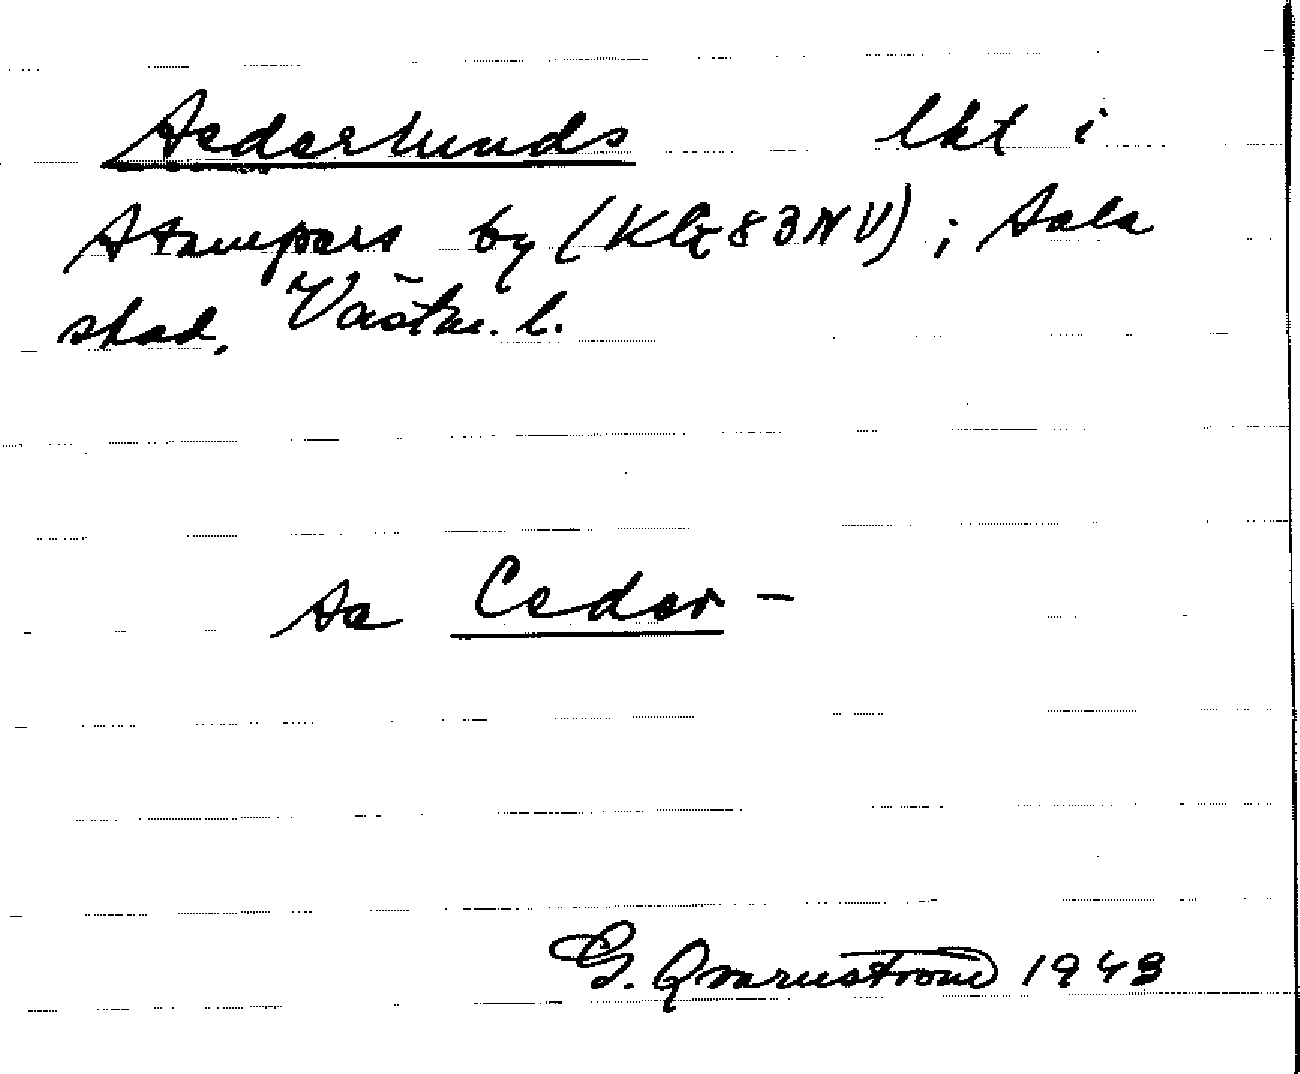 Sederlunds lkt i
Stampers by (Klg 83 NV); Sala
stad, Västm. l.
se Ceder-
G. Qvarnström 1943